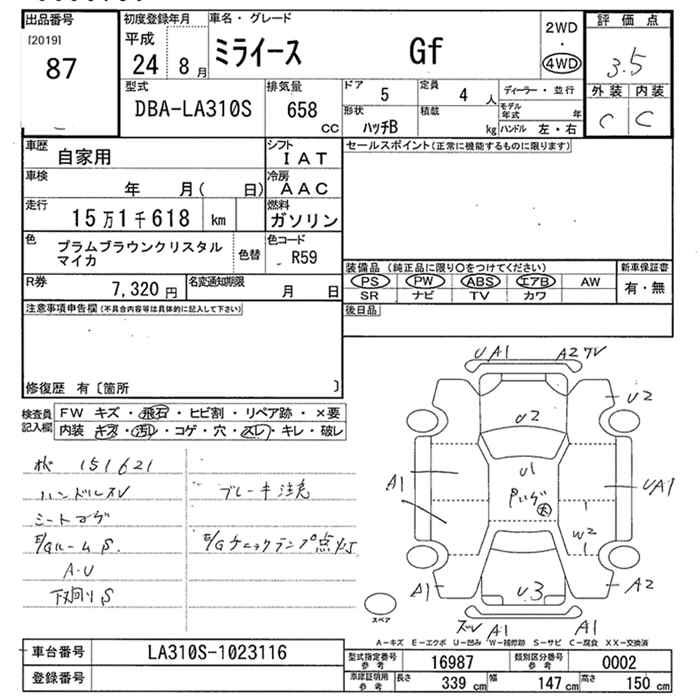 出品番号
[2019]
87
初度登録年月
平成
24 8月
車名・グレード
ミライース Gf
2WD
・
4WD
評価点
3.5
外装 内装
C C
型式
DBA-LA310S
排気量
658
CC
ドア
5
定員
4人
形状
ハッチB
積載
kg
ディーラー・並行
モデル年式 年
ハンドル 左・右
車歴
自家用
シフト
IAT
車検
年 月( 日)
冷房
AAC
走行
15万1千618 km
燃料
ガソリン
色
プラムブラウンクリスタル
マイカ
色替
色コード
R59
R券
7,320円
名変通知期限
月 日
セールスポイント(正常に機能するものに限ります)
装備品 (純正品に限り○をつけてください)
新車保証書
PS PW ABS エアB AW
有・無
SR ナビ TV カワ
後日品
注意事項申告欄(不具合内容等は具体的に記入して下さい)
修復歴 有〔箇所 〕
検査員
記入欄
FW キズ・飛石・ヒビ割・リペア跡・×要
内装 キズ・汚レ・コゲ・穴・スレ・キレ・破レ
151621
ハンドルスV
ブレーキ注意
シートコゲ
E/Gルーム S.
E/Gチェックランプ点灯
A・U
下廻り S
UA1 A2
U2
U2
U1
A1
UA1
W2
A1
A2
U3
A1
A1
スペア
A－キズ E－エクボ U－凹み W－補修跡 S－サビ C－腐食 XX－交換済
車台番号
LA310S-1023116
登録番号
型式指定番号
参考
16987
類別区分番号
参考
0002
車庫証明用
参考
長さ 339cm
幅 147cm
高さ 150cm